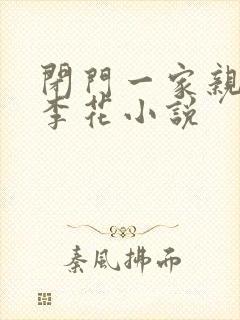 閉門一家親
李花小説
秦風拂而